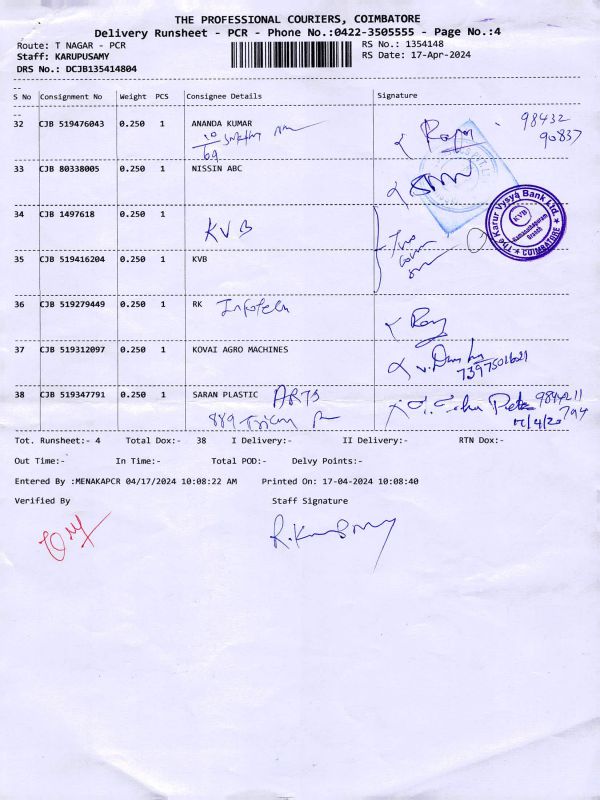 THE PROFESSIONAL COURIERS, COIMBATORE
Delivery Runsheet - PCR - Phone No.:0422-3505555 - Page No.:4
Route: T NAGAR - PCR RS No.: 1354148
Staff: KARUPUSAMY RS Date: 17-Apr-2024
DRS No.: DCJB135414804
S No Consignment No Weight PCS Consignee Details Signature
32 CJB 519476043 0.250 1 ANANDA KUMAR 98432
10/69 90837
33 CJB 80338005 0.250 1 NISSIN ABC
34 CJB 1497618 0.250 1 KVB
The Karur Vysya Bank Ltd. KVB Ramanathapuram Branch COIMBATORE
35 CJB 519416204 0.250 1 KVB
36 CJB 519279449 0.250 1 RK Infotech
37 CJB 519312097 0.250 1 KOVAI AGRO MACHINES
38 CJB 519347791 0.250 1 SARAN PLASTIC ARTS
889 Trichy
Tot. Runsheet:- 4 Total Dox:- 38 I Delivery:- II Delivery:- RTN Dox:-
Out Time:- In Time:- Total POD:- Delvy Points:-
Entered By :MENAKAPCR 04/17/2024 10:08:22 AM Printed On: 17-04-2024 10:08:40
Verified By Staff Signature